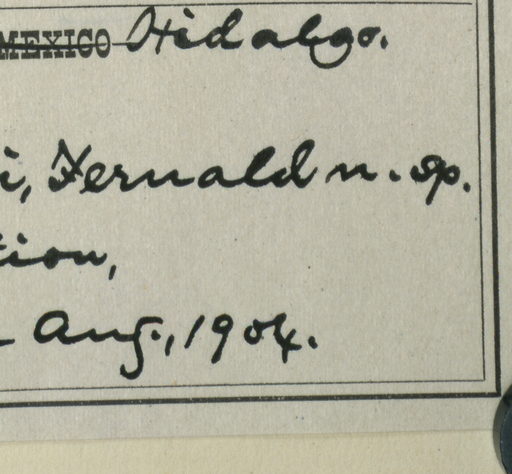 MEXICO Hidalgo.
i, Fernald n. sp.
tion,
Aug., 1904.